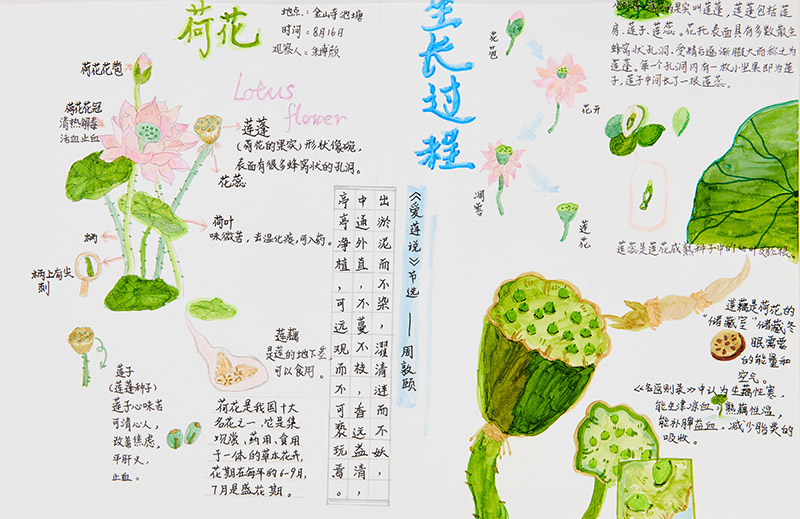 荷花
地点：金山寺池塘
时间：8月16日
观察人：朱博颜
Lotus
flower
荷花花苞
荷花花冠
清热解毒
活血止血
莲蓬
（荷花的果实）形状像碗，
表面有很多蜂窝状的孔洞。
花蕊
荷叶
味微苦，去湿化痰，可入药。
柄
柄上有尖
刺
莲子
（莲蓬种子）
莲子心味苦
可清心人，
改善焦虑，
平肝火，
止血。
莲藕
是莲的地下茎
可以食用。
荷花是我国十大
名花之一，它是集
观赏、药用、食用
于一体的草本花卉，
花期在每年的6-9月，
7月是盛花期。
生长过程
花苞
花开
凋零
莲花
《爱莲说》节选——周敦颐
出淤泥而不染，濯清涟而不妖，
中通外直，不蔓不枝，香远益清，
亭亭净植，可远观而不可亵玩焉。
果实叫莲蓬，莲蓬包括莲
房、莲子、莲蕊。花托表面具有多数散生
蜂窝状孔洞，受精后逐渐膨大而称之为
莲蓬。每一个孔洞内有一枚小坚果即为莲
子，莲子中间长了一根莲蕊。
莲蕊是莲花成熟种子中的幼叶及胚根。
莲藕是荷花的
“储藏室”储藏冬
眠需要
的能量和
空气。
《名医别录》中认为生藕性寒，
能生津凉血，熟藕性温，
能补脾益血，减少脂类的
吸收。